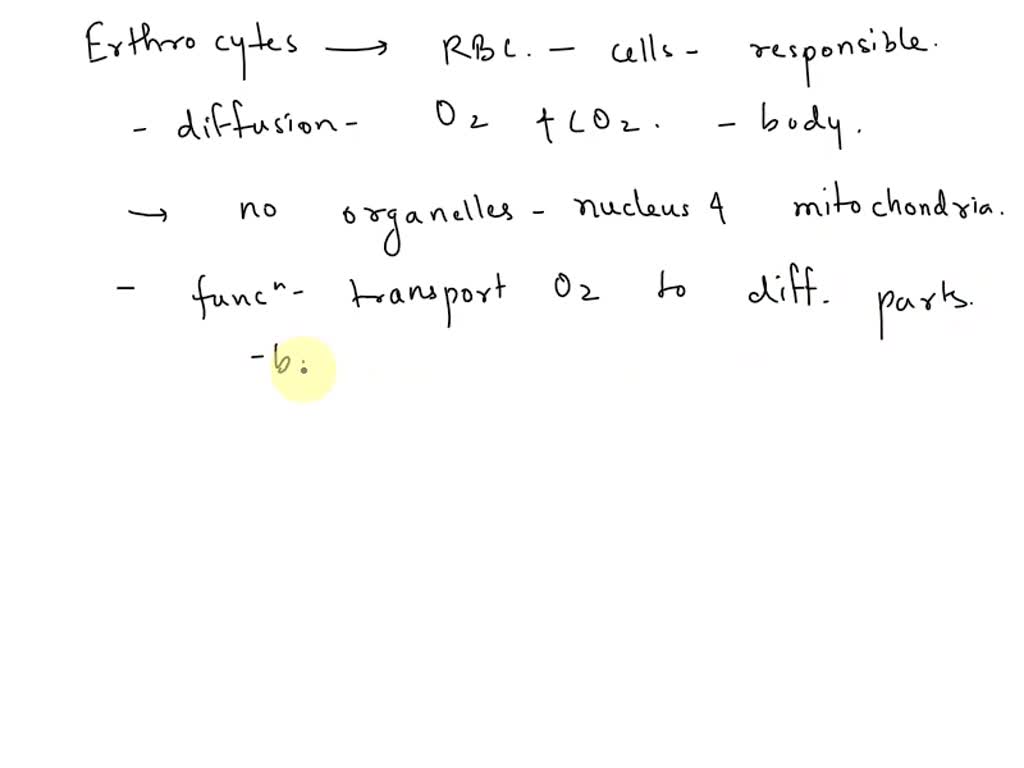 Erthrocytes → RBC. - cells - responsible.
- diffusion - O2 + CO2. - body.
→ no organelles - nucleus & mitochondria.
- funcⁿ- transport O2 to diff. parts.
- b.